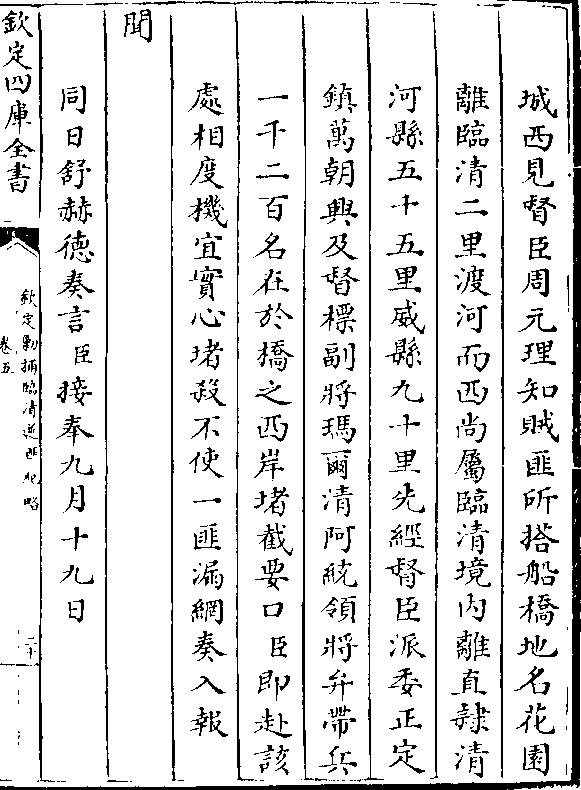 城西見督臣周元理知賊匪所搭船橋地名花園
離臨清二里渡河而西尚屬臨清境内離直隸清
河縣五十五里威縣九十里先經督臣派委正定
鎮萬朝興及督標副將瑪爾清阿統領將弁帶兵
一千二百名在於橋之西岸堵截要口臣即赴該
處相度機宜實心堵殺不使一匪漏網奏入報
聞
同日舒赫德奏言臣接奉九月十九日
欽定四庫全書
欽定剿捕臨清逆匪紀略
卷五
二十